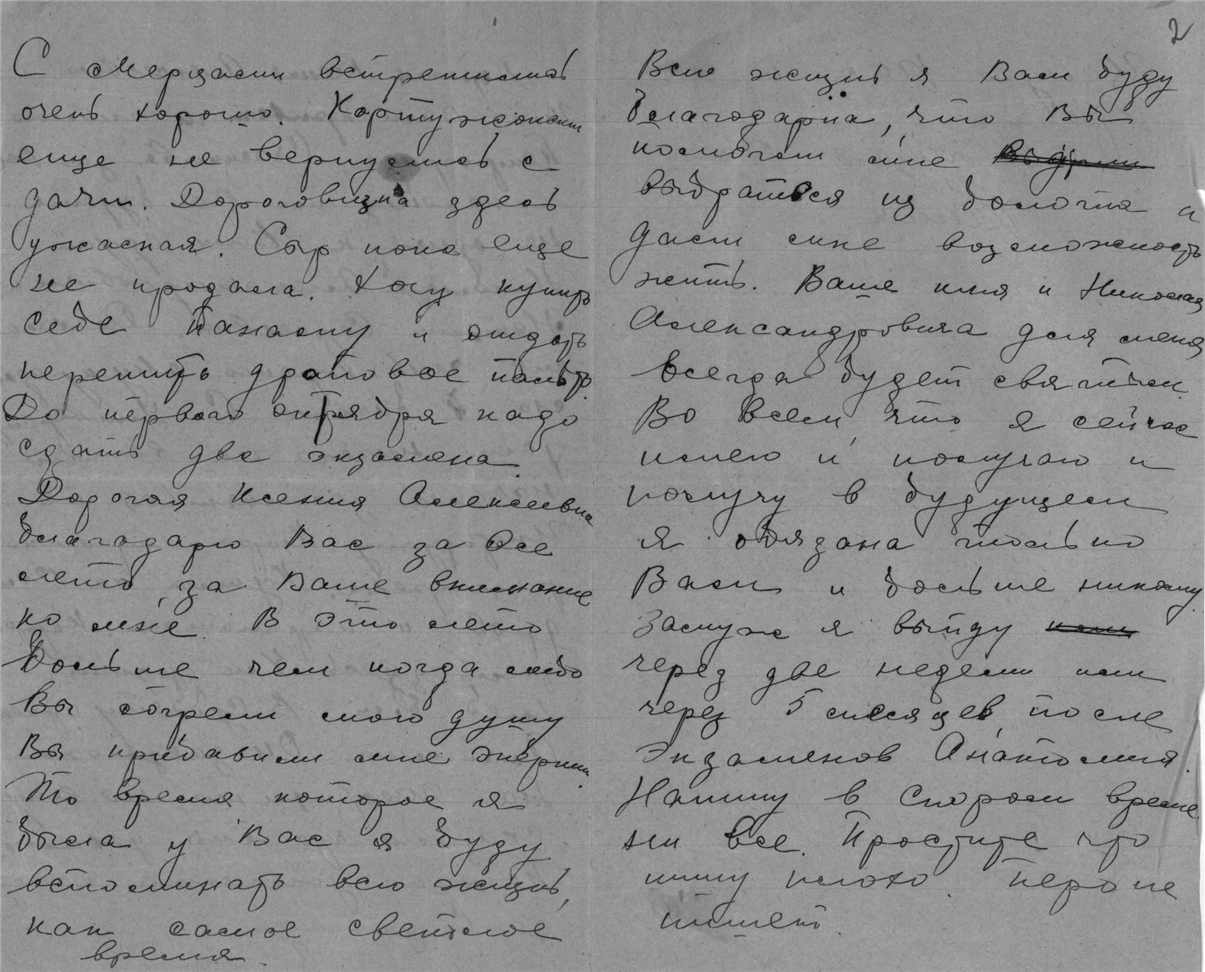 2
С Мерцасти встретились
очень хорошо. Картужанские
еще не вернулись с
дачи. Дороговизна здесь
ужасная. Сыр пока еще
не продала. Хочу купить
себе Панаму и отдать
перешить драповое пальто.
До первого октября надо
сдать две экзамена
Дорогая Ксения Алексеевна
благодарю Вас за все
лето, за Ваше внимание
ко мне. В это лето
больше чем когда либо
Вы согрели мою душу
Вы прибавили мне энергии.
То время которое я
была у Вас я буду
вспоминать всю жизнь,
как самое светлое
время.
Всю жизнь я Вам буду
благодарна, что Вы
помогали мне
выбраться из болота и
дали мне возможность
жить. Ваше имя и Николая
Александровича для меня
всегда будет святым.
Во всем, что я сейчас
имею и получаю и
получу в будущем
я обязана только
Вам и больше никому.
Замуж я выйду
через две недели или
через 5 месяцев, после
экзаменов Анатомия.
Напишу в скором време
ни все. Простите что
пишу плохо. Перо не
пишет.